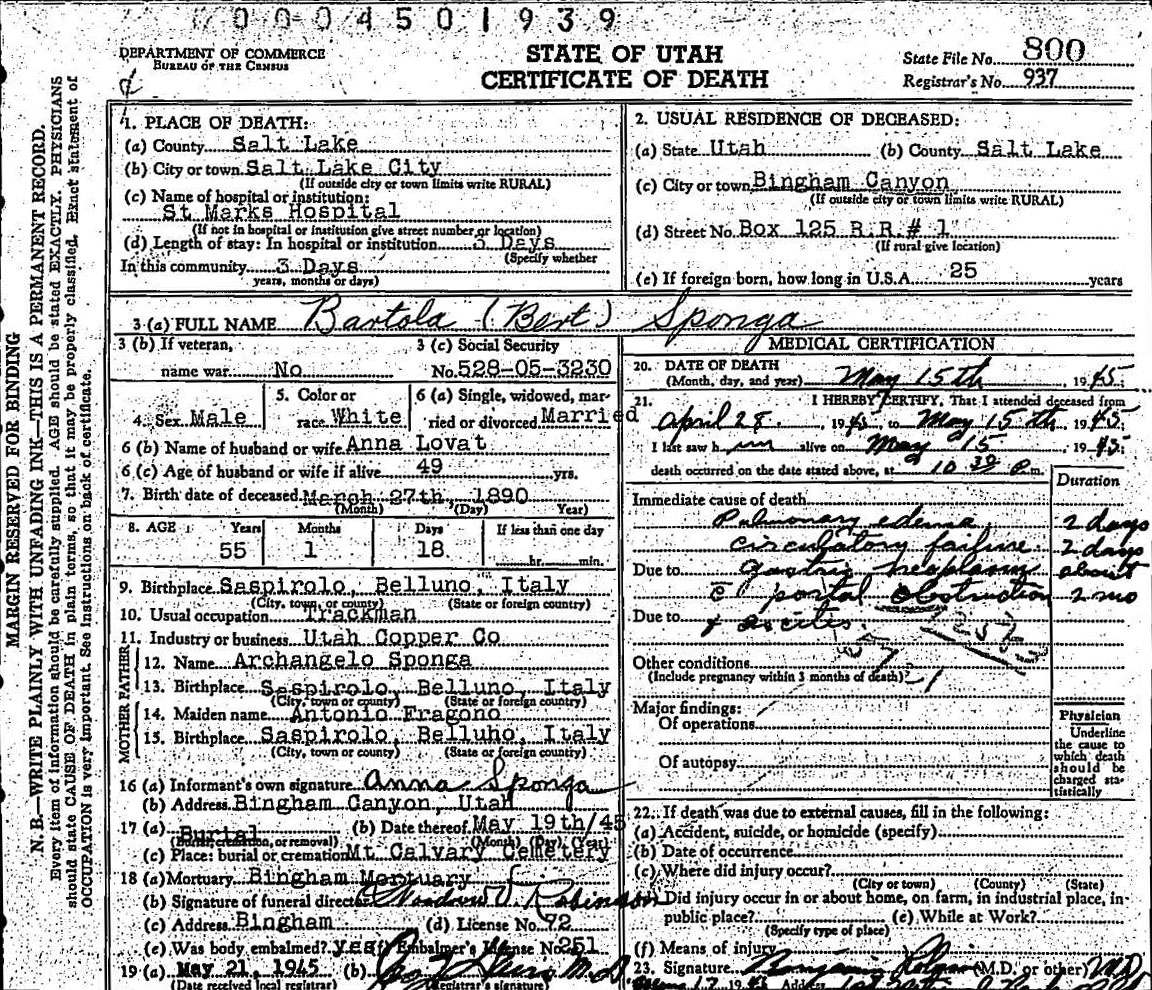 0 0 0 4 5 0 1 9 3 9
DEPARTMENT OF COMMERCE
BUREAU OF THE CENSUS
STATE OF UTAH
CERTIFICATE OF DEATH
State File No. 800
Registrar's No. 937
MARGIN RESERVED FOR BINDING
N. B.—WRITE PLAINLY WITH UNFADING INK—THIS IS A PERMANENT RECORD.
Every item of information should be carefully supplied. AGE should be stated EXACTLY. PHYSICIANS
should state CAUSE OF DEATH in plain terms, so that it may be properly classified. Exact statement of
OCCUPATION is very important. See instructions on back of certificate.
1. PLACE OF DEATH:
(a) County Salt Lake
(b) City or town Salt Lake City
(If outside city or town limits write RURAL)
(c) Name of hospital or institution:
St Marks Hospital
(If not in hospital or institution give street number or location)
(d) Length of stay: In hospital or institution 3 Days
(Specify whether
In this community 3 Days
years, months or days)
2. USUAL RESIDENCE OF DECEASED:
(a) State Utah (b) County Salt Lake
(c) City or town Bingham Canyon
(If outside city or town limits write RURAL)
(d) Street No. Box 125 R.R.# 1
(If rural give location)
(e) If foreign born, how long in U.S.A. 25 years
3 (a) FULL NAME Bartola (Bert) Sponga
3 (b) If veteran,
name war No
3 (c) Social Security
No. 528-05-3230
4. Sex Male
5. Color or
race White
6 (a) Single, widowed, mar-
ried or divorced Married
6 (b) Name of husband or wife Anna Lovat
6 (c) Age of husband or wife if alive 49 yrs.
7. Birth date of deceased March 27th, 1890
(Month) (Day) Year)
8. AGE Years Months Days If less than one day
55 1 18 hr. min.
9. Birthplace Saspirolo, Belluno, Italy
(City, town, or county) (State or foreign country)
10. Usual occupation Trackman
11. Industry or business Utah Copper Co
FATHER
12. Name Archangelo Sponga
13. Birthplace Saspirolo, Belluno, Italy
(City, town or county) (State or foreign country)
MOTHER
14. Maiden name Antonio Fragono
15. Birthplace Saspirolo, Belluno, Italy
(City, town or county) (State or foreign country)
16 (a) Informant's own signature Anna Sponga
(b) Address Bingham Canyon, Utah
17 (a) Burial (b) Date thereof May 19th/45
(Burial, cremation, or removal) (Month) (Day) (Year)
(c) Place: burial or cremation Mt Calvary Cemetery
18 (a) Mortuary Bingham Mortuary
(b) Signature of funeral director Woodrow V. Robinson
(c) Address Bingham (d) License No. 72
(e) Was body embalmed? yes (f) Embalmer's License No. 251
19 (a) May 21, 1945 (b) M.D.
(Date received local registrar) Registrar's signature)
MEDICAL CERTIFICATION
20. DATE OF DEATH
(Month, day, and year) May 15th, 1945;
21. I HEREBY CERTIFY, That I attended deceased from
April 28, 1945, to May 15th, 1945;
I last saw him alive on May 15, 1945;
death occurred on the date stated above, at 10 30 P.m.
Duration
Immediate cause of death
Pulmonary edema 2 days
circulatory failure 2 days
Due to gastric neoplasm about
c̄ portal obstruction 2 mo
Due to & ascites.
Other conditions
(Include pregnancy within 3 months of death)
Major findings:
Of operations
Of autopsy
Physician
Underline
the cause to
which death
should be
charged sta-
tistically
22. If death was due to external causes, fill in the following:
(a) Accident, suicide, or homicide (specify)
(b) Date of occurrence
(c) Where did injury occur?
(City or town) (County) (State)
Did injury occur in or about home, on farm, in industrial place, in
public place? (e) While at Work?
(Specify type of place)
(f) Means of injury
23. Signature (M.D. or other) M.D.
Address